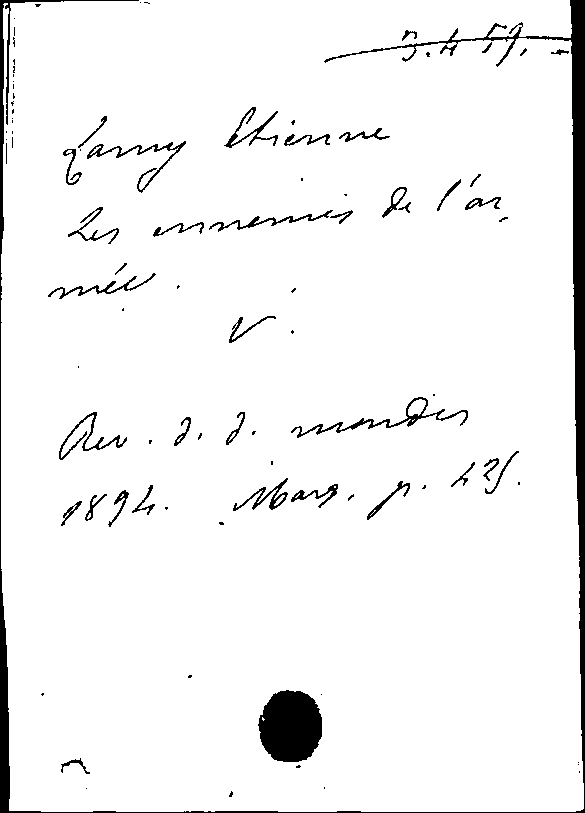 3.4 59.-
Lamy Etienne
Les ennemis de l'ar-
mée.
V.
Rev. d. d. mondes
1894. Mars, p. 425.